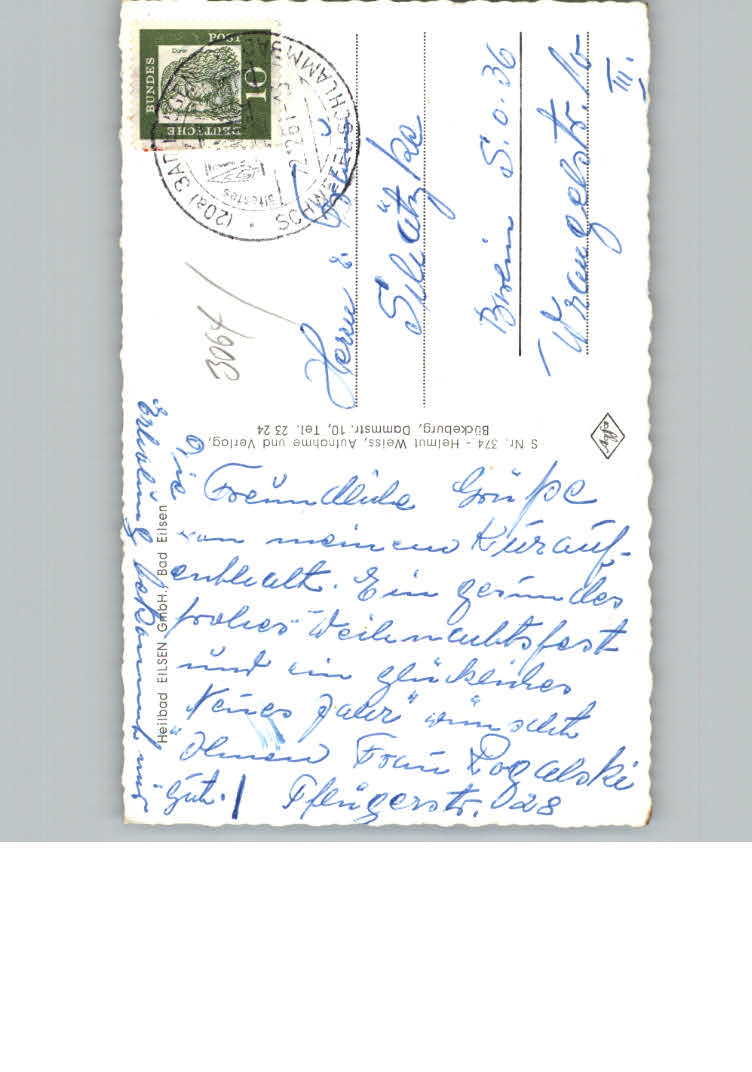 Heilbad EILSEN GmbH., Bad Eilsen
Freundliche Grüße
von meinem Kurauf-
enthhalt. Ein gesundes
frohes Weihnachtsfest
und ein glückliches
"Neues Jahr" wünscht
Ihnen Frau Rogalski
Pflügerstr. 28
Die
Erholung bekommt mir
gut.
S Nr. 374 - Helmut Weiss, Aufnahme und Verlag,
Bückeburg, Dammstr. 10, Tel. 23 24
Agfa
3064
DEUTSCHE
BUNDES
POST
10
Dürer
(20a) BAD
SCHWEFELSCHLAMMBAD
Herrn &
Schätzke
Berlin S.O. 36
Wrangelstr. 16
III.